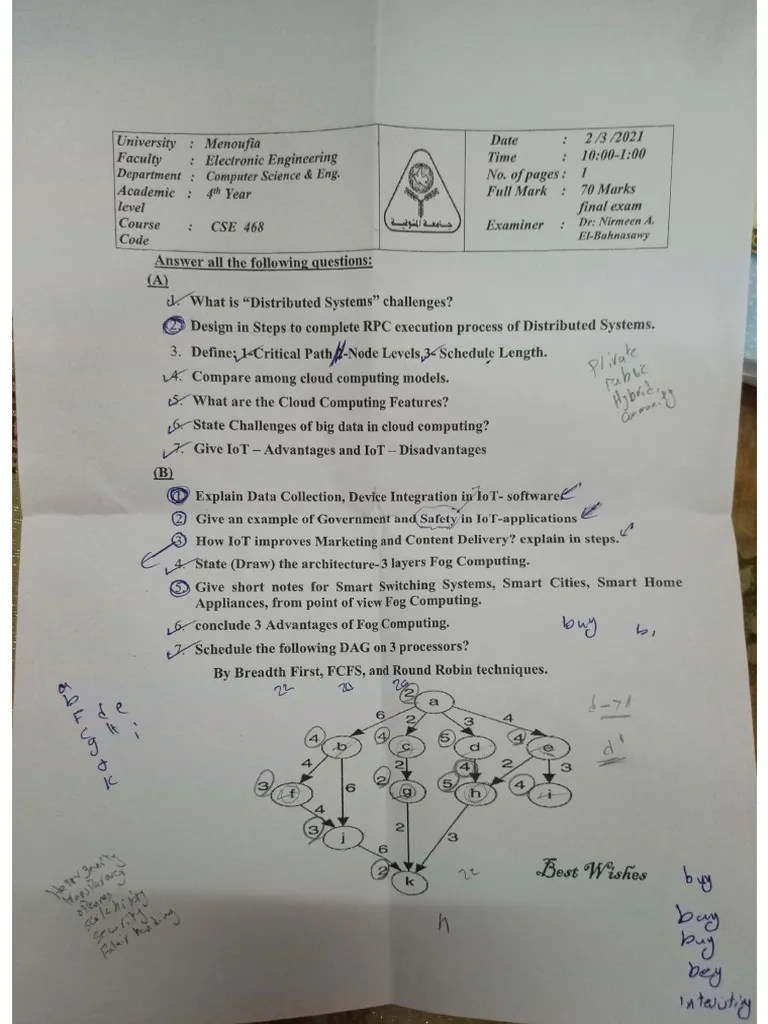 University : Menoufia
Faculty : Electronic Engineering
Department : Computer Science & Eng.
Academic level : 4th Year
Course Code : CSE 468
جامعة المنوفية
Date : 2/3/2021
Time : 10:00-1:00
No. of pages : 1
Full Mark : 70 Marks
final exam
Examiner : Dr: Nirmeen A.
El-Bahnasawy
Answer all the following questions:
(A)
1. What is “Distributed Systems” challenges?
2. Design in Steps to complete RPC execution process of Distributed Systems.
3. Define; 1-Critical Path, 2-Node Levels, 3- Schedule Length.
4. Compare among cloud computing models.
5. What are the Cloud Computing Features?
6. State Challenges of big data in cloud computing?
7. Give IoT – Advantages and IoT – Disadvantages
Private
Public
Hybrid
Community
(B)
1 Explain Data Collection, Device Integration in IoT- software
2 Give an example of Government and Safety in IoT-applications
3 How IoT improves Marketing and Content Delivery? explain in steps.
4. State (Draw) the architecture-3 layers Fog Computing.
5. Give short notes for Smart Switching Systems, Smart Cities, Smart Home
Appliances, from point of view Fog Computing.
6. conclude 3 Advantages of Fog Computing.
buy
7. Schedule the following DAG on 3 processors?
By Breadth First, FCFS, and Round Robin techniques.
22 20
2 a
6 2 3 4
4 b 4 c 5 d 4 e
4 6 2 4 2 3
3 f 2 g 5 h 4 i
4 2 3
3 j
6
2 k
22
Best Wishes
a
b
f
c
g
j
k
d e
h
i
scalability
security
buy
buy
buy